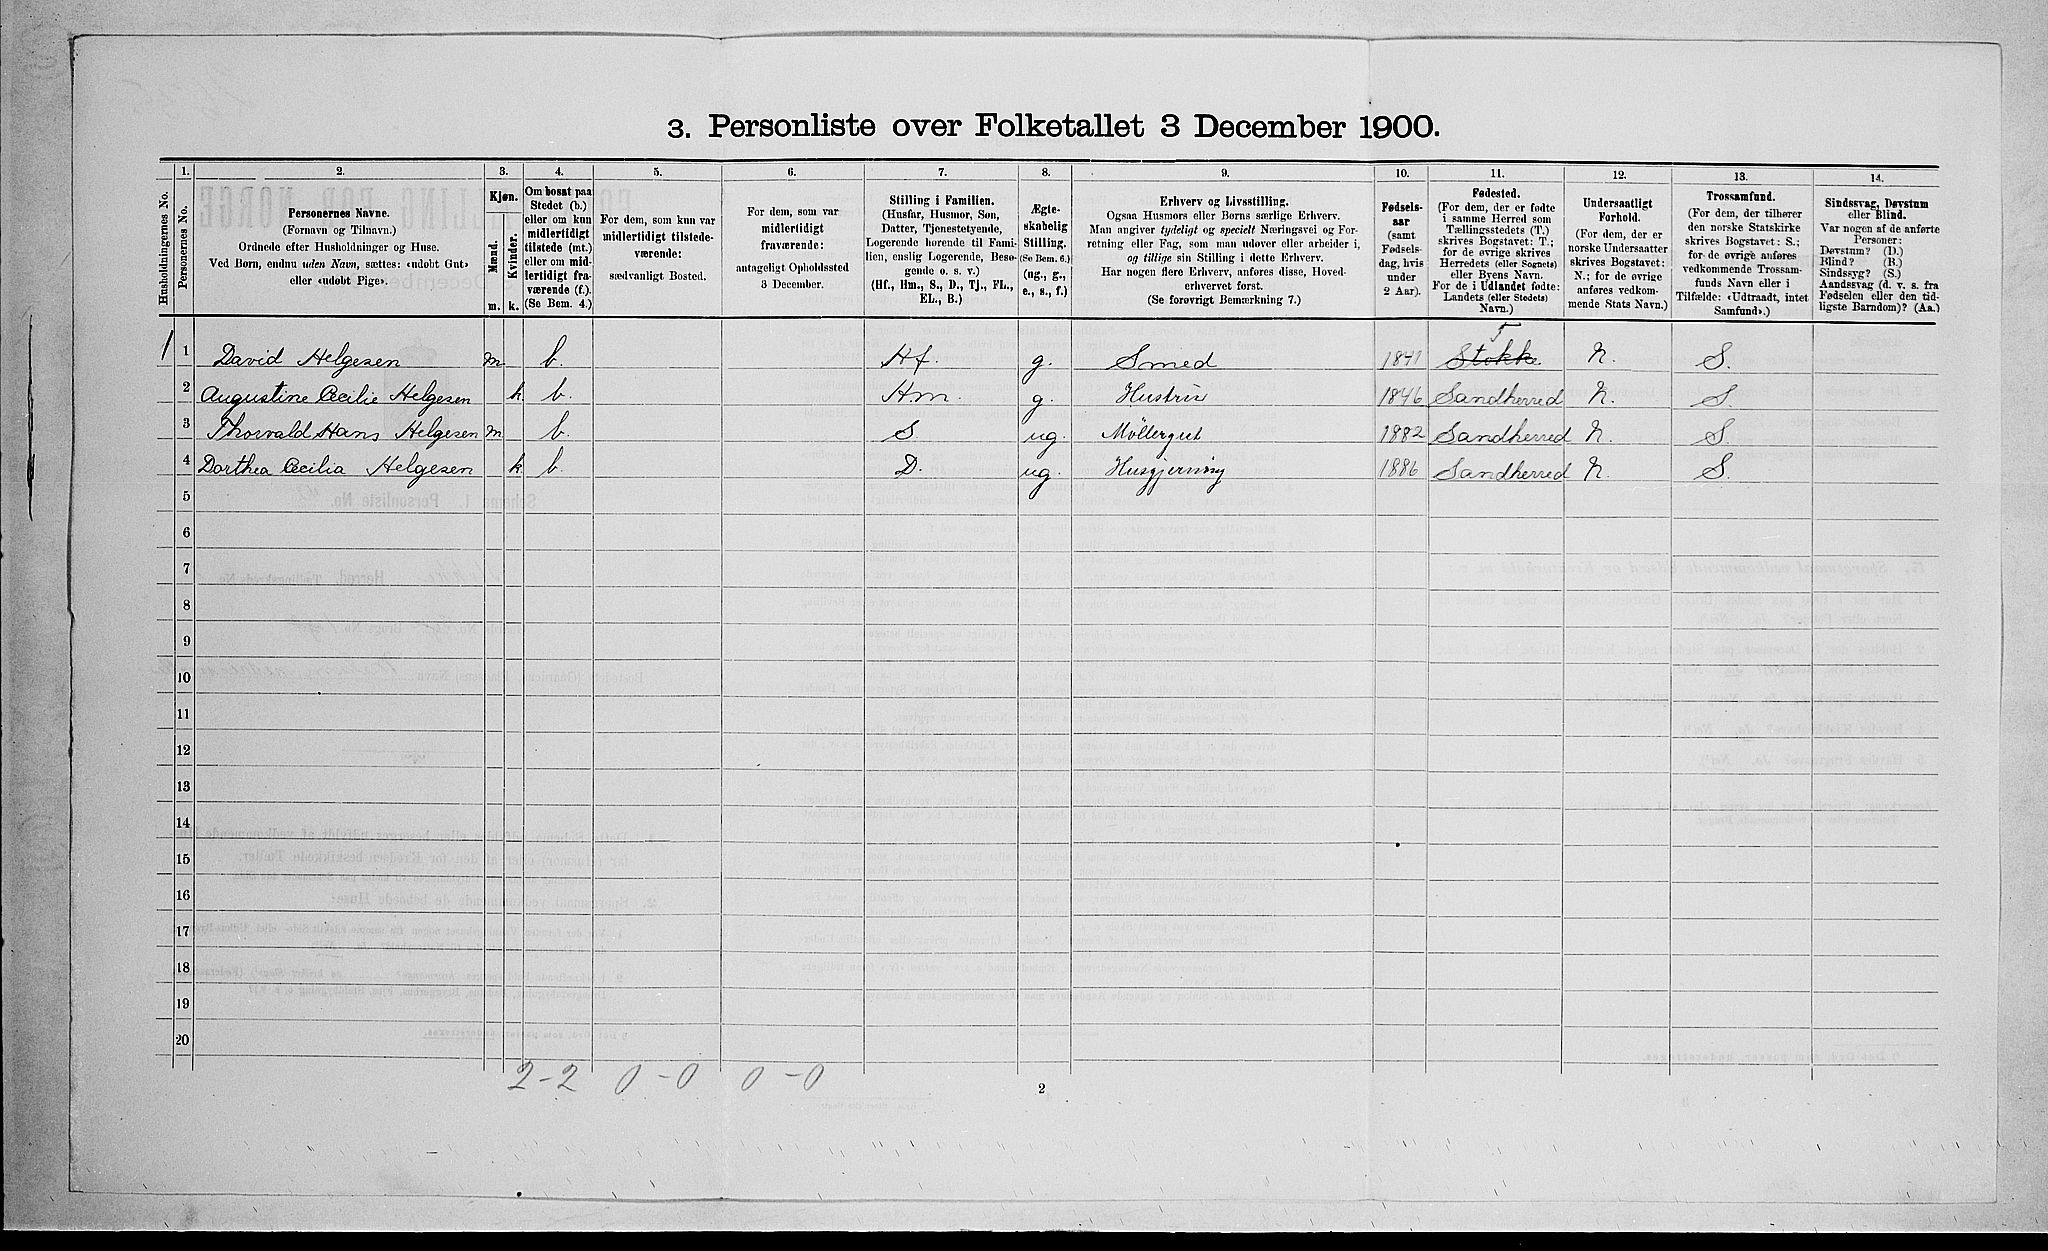 3. Personliste over Folketallet 3 December 1900.
Husholdningernes No.
1.
Personernes No.
2.
Personernes Navne.
(Fornavn og Tilnavn.)
Ordnede efter Husholdninger og Huse.
Ved Børn, endnu uden Navn, sættes: «udøbt Gut»
eller «udøbt Pige».
3.
Kjøn.
Mænd.
Kvinder.
m. k.
4.
Om bosat paa
Stedet (b.)
eller om kun
midlertidigt
tilstede (mt.)
eller om mid-
lertidigt fra-
værende (f.).
(Se Bem. 4.)
5.
For dem, som kun var
midlertidigt tilstede-
værende:
sædvanligt Bosted.
6.
For dem, som var
midlertidigt
fraværende:
antageligt Opholdssted
3 December.
7.
Stilling i Familien.
(Husfar, Husmor, Søn,
Datter, Tjenestetyende,
Logerende hørende til Fami-
lien, enslig Logerende, Besø-
gende o. s. v.)
(Hf., Hm., S., D., Tj., FL.,
EL., B.)
8.
Ægte-
skabelig
Stilling.
(Se Bem. 6.)
(ug., g.,
e., s., f.)
9.
Erhverv og Livsstilling.
Ogsaa Husmors eller Børns særlige Erhverv.
Man angiver tydeligt og specielt Næringsvei og For-
retning eller Fag, som man udøver eller arbeider i,
og tillige sin Stilling i dette Erhverv.
Har nogen flere Erhverv, anføres disse, Hoved-
erhvervet først.
(Se forøvrigt Bemærkning 7.)
10.
Fødsels-
aar
(samt
Fødsels-
dag, hvis
under
2 Aar).
11.
Fødested.
(For dem, der er fødte
i samme Herred som
Tællingsstedets (T.)
skrives Bogstavet: T.;
for de øvrige skrives
Herredets (eller Sognets)
eller Byens Navn.
For de i Udlandet fødte:
Landets (eller Stedets)
Navn.)
12.
Undersaatligt
Forhold.
(For dem, der er
norske Undersaatter
skrives Bogstavet:
N.; for de øvrige
anføres vedkom-
mende Stats Navn.)
13.
Trossamfund.
(For dem, der tilhører
den norske Statskirke
skrives Bogstavet: S.;
for de øvrige anføres
vedkommende Trossam-
funds Navn eller i
Tilfælde: «Udtraadt, intet
Samfund».)
14.
Sindssvag, Døvstum
eller Blind.
Var nogen af de anførte
Personer:
Døvstum? (D.)
Blind? (B.)
Sindssyg? (S.)
Aandssvag (d. v. s. fra
Fødselen eller den tid-
ligste Barndom)? (Aa.)
1 1 David Helgesen m b. Hf. g. Smed 1841 Stokke T N. S.
2 Augustine Cecilie Helgesen k b. Hm. g. Hustru 1846 Sandherred N. S
3 Thorvald Hans Helgesen m b. S. ug. Møllergut 1882 Sandherred N. S.
4 Dorthea Cecilia Helgesen k b. D. ug. Husgjerning 1886 Sandherred N. S.
5
6
7
8
9
10
11
12
13
14
15
16
17
18
19
20
2-2 0-0 0-0
2